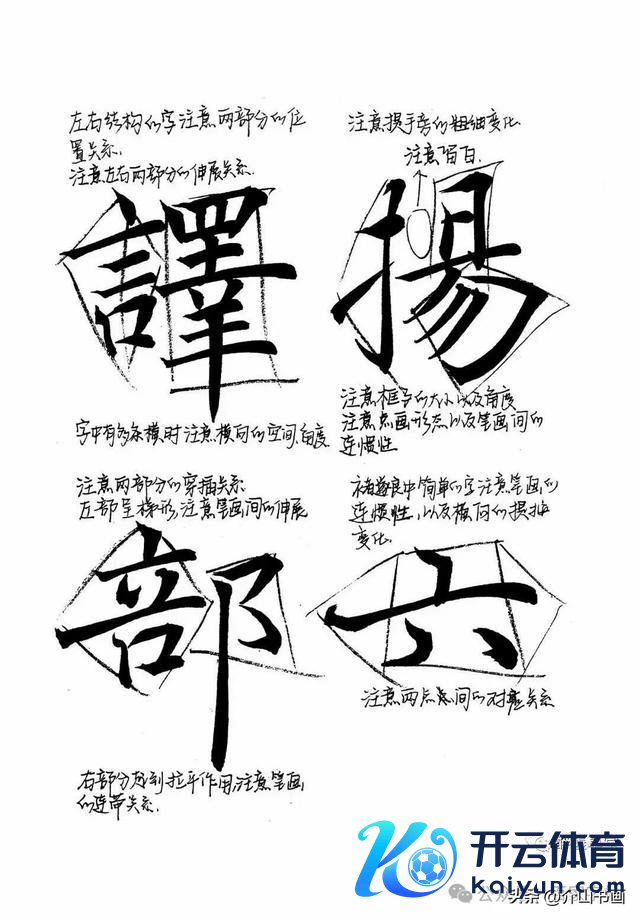 左右结构的字注意两部分的位
置关系.
注意左右两部分的伸展关系.
譯
字中有多条横时注意横向的空间、角度
注意提手旁的粗细变化
注意留白.
揚
注意框字的大小以及角度
注意点画形态以及笔画间的
连惯性
注意两部分的穿插关系
左部呈梯形,注意笔画间的伸展
部
右部分起到拉平作用,注意笔画
的连带关系.
褚遂良中简单的字注意笔画的
连惯性,以及横向的提按
变化.
六
注意两点之间的对应关系
开云体育
kaiyun.com
头条 @介山书画